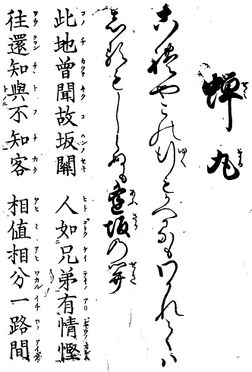 蟬丸
これやこの行もかへるもわかれてハ
しるもしらぬも逢坂の関
此地曾聞故坂關　人如兄弟有情慳
往還知與不知客　相値相分一路間